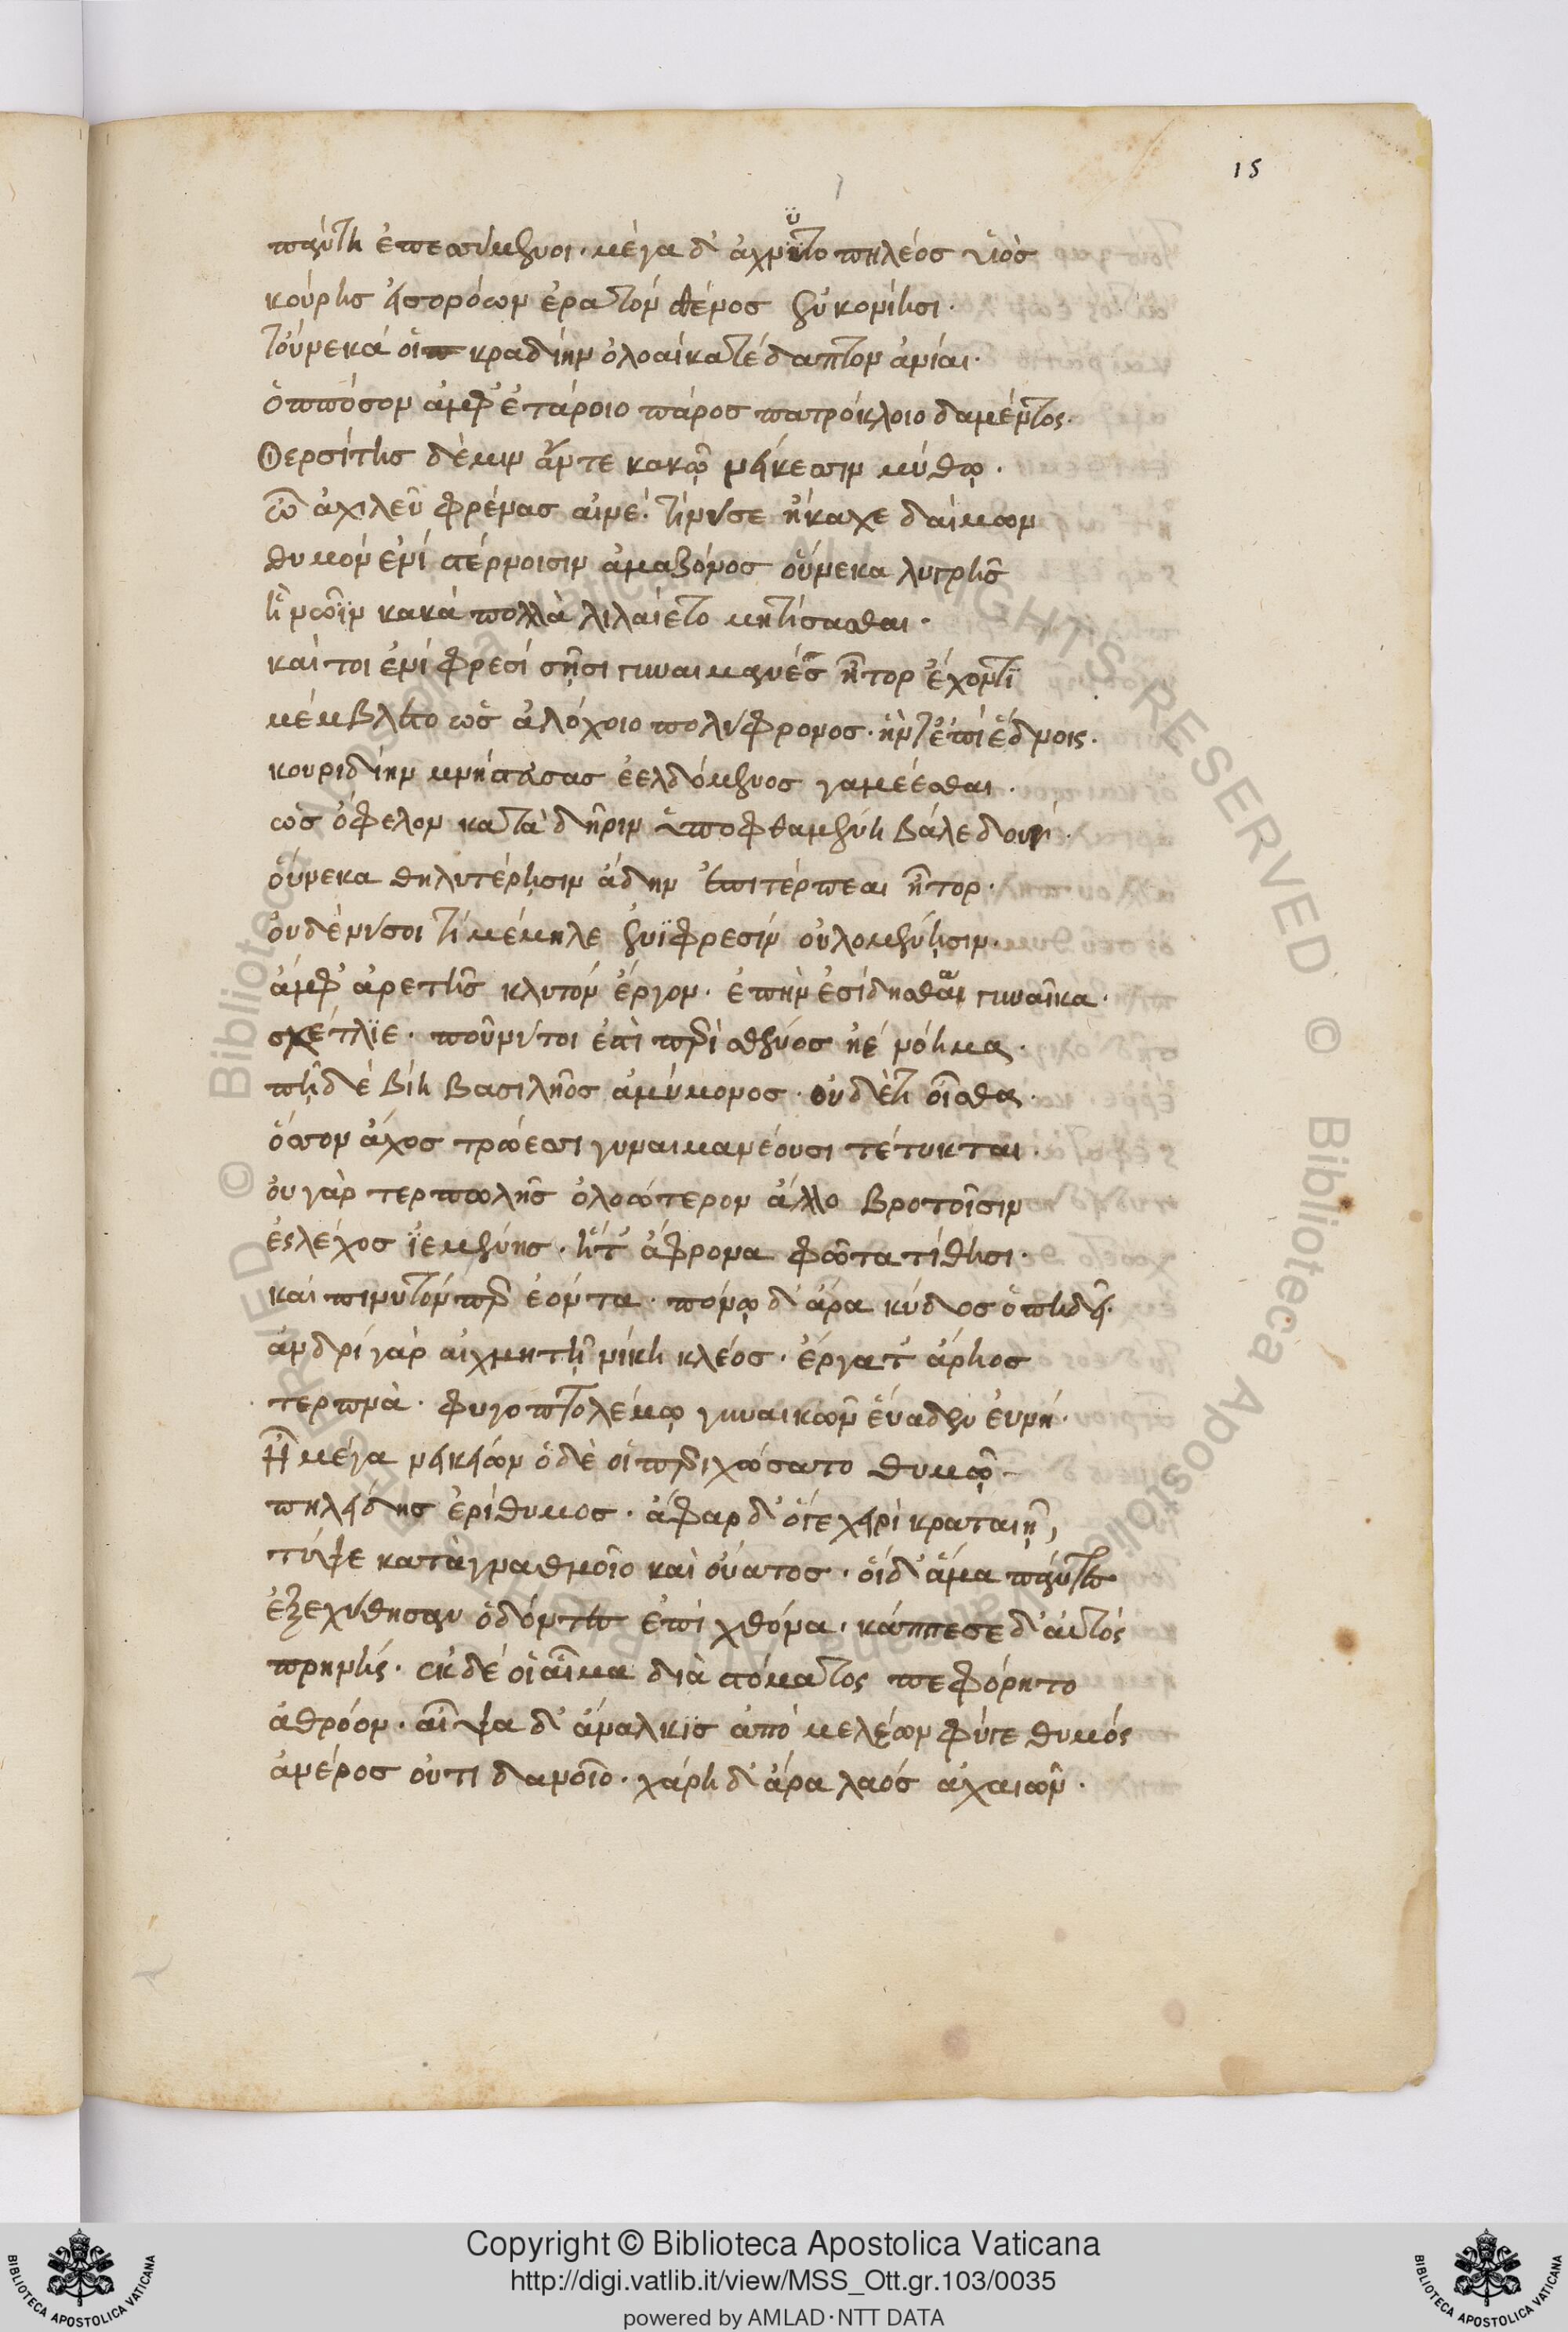 15
πάντη ἐπεσσύμενοι· μέγα δ' ἄχνυτο πηλέος υἱὸς
κούρης εἰσορόων ἐρατὸν σθένος ἐν κονίῃσι·
τοὔνεκά οἱ κραδίην ὀλοαὶ κατέδαπτον ἀνίαι·
ὁππόσον ἀμφ' ἑτάροιο πάρος πατρόκλοιο δαμέντος·
Θερσίτης δέ μιν ἄντε κακῷ νείκεσσιν μύθῳ·
ὦ ἀχιλεῦ φρένας αἰνέ· τί νύ σε ἤκαχε δαίμων
θυμὸν ἐνὶ στέρνοισιν ἀμαζόνος οὕνεκα λυγρῆς
ἣ νῶϊν κακὰ πολλὰ λιλαίετο μητίσασθαι·
καί τοι ἐνὶ φρεσὶ σῇσι γυναιμανὲς ἦτορ ἔχοντι
μέμβλετο ὡς ἀλόχοιο πολύφρονος· ἥν τ' ἐπὶ ἕδνοις·
κουριδίην μνήστασας ἐελδόμενος γαμέεσθαι·
ὥς ὄφελον κατὰ δῆριν ὑποφθαμένη βάλε δουρί·
οὕνεκα θηλυτέρῃσιν ἄδην ἐπιτέρπεαι ἦτορ·
οὐδέ νύ σοί τι μέμηλε ἐνὶ φρεσὶν οὐλομένῃσιν·
ἀμφ' ἀρετῆς κλυτὸν ἔργον· ἐπὴν ἐσίδησθα γυναῖκα·
σχέτλιε· ποῦ νύ τοι ἐστὶ περὶ σθένος ἠὲ νόημα·
πῇ δὲ βίη βασιλῆος ἀμύμονος· οὐδέ τι οἶσθα·
ὅσσον ἄχος τρώεσσι γυναιμανέουσι τέτυκται·
οὐ γὰρ τερπωλῆς ὀλοώτερον ἄλλο βροτοῖσιν
ἐς λέχος ἱεμένης· ἥ τ' ἄφρονα φῶτα τίθησι·
καὶ πινυτόν περ ἐόντα· πόνῳ δ' ἄρα κύδος ὀπηδεῖ·
ἀνδρὶ γὰρ αἰχμητῇ νίκη κλέος· ἔργα τ' ἄρηος
τερπνά· φυγοπτολέμῳ γυναικῶν εὔαδεν εὐνή·
Ἦ μέγα νεικείων ὁ δέ οἱ περιχώσατο θυμῷ
πηλείδης ἐρίθυμος· ἄφαρ δ' ὅγε χειρὶ κραταιῇ,
τύψε κατὰ γναθμοῖο καὶ οὔατος· οἱ δ' ἅμα πάντες
ἐξεχύθησαν ὀδόντες ἐπὶ χθόνα· κάππεσε δ' αὐτὸς
πρηνής· ἐκ δέ οἱ αἷμα διὰ στόματος πεφόρητο
ἀθρόον· αἶψα δ' ἄναλκις ἀπὸ μελέων φύγε θυμὸς
ἀνέρος οὐτιδανοῖο· χάρη δ' ἄρα λαὸς ἀχαιῶν·
Copyright © Biblioteca Apostolica Vaticana
http://digi.vatlib.it/view/MSS_Ott.gr.103/0035
powered by AMLAD·NTT DATA